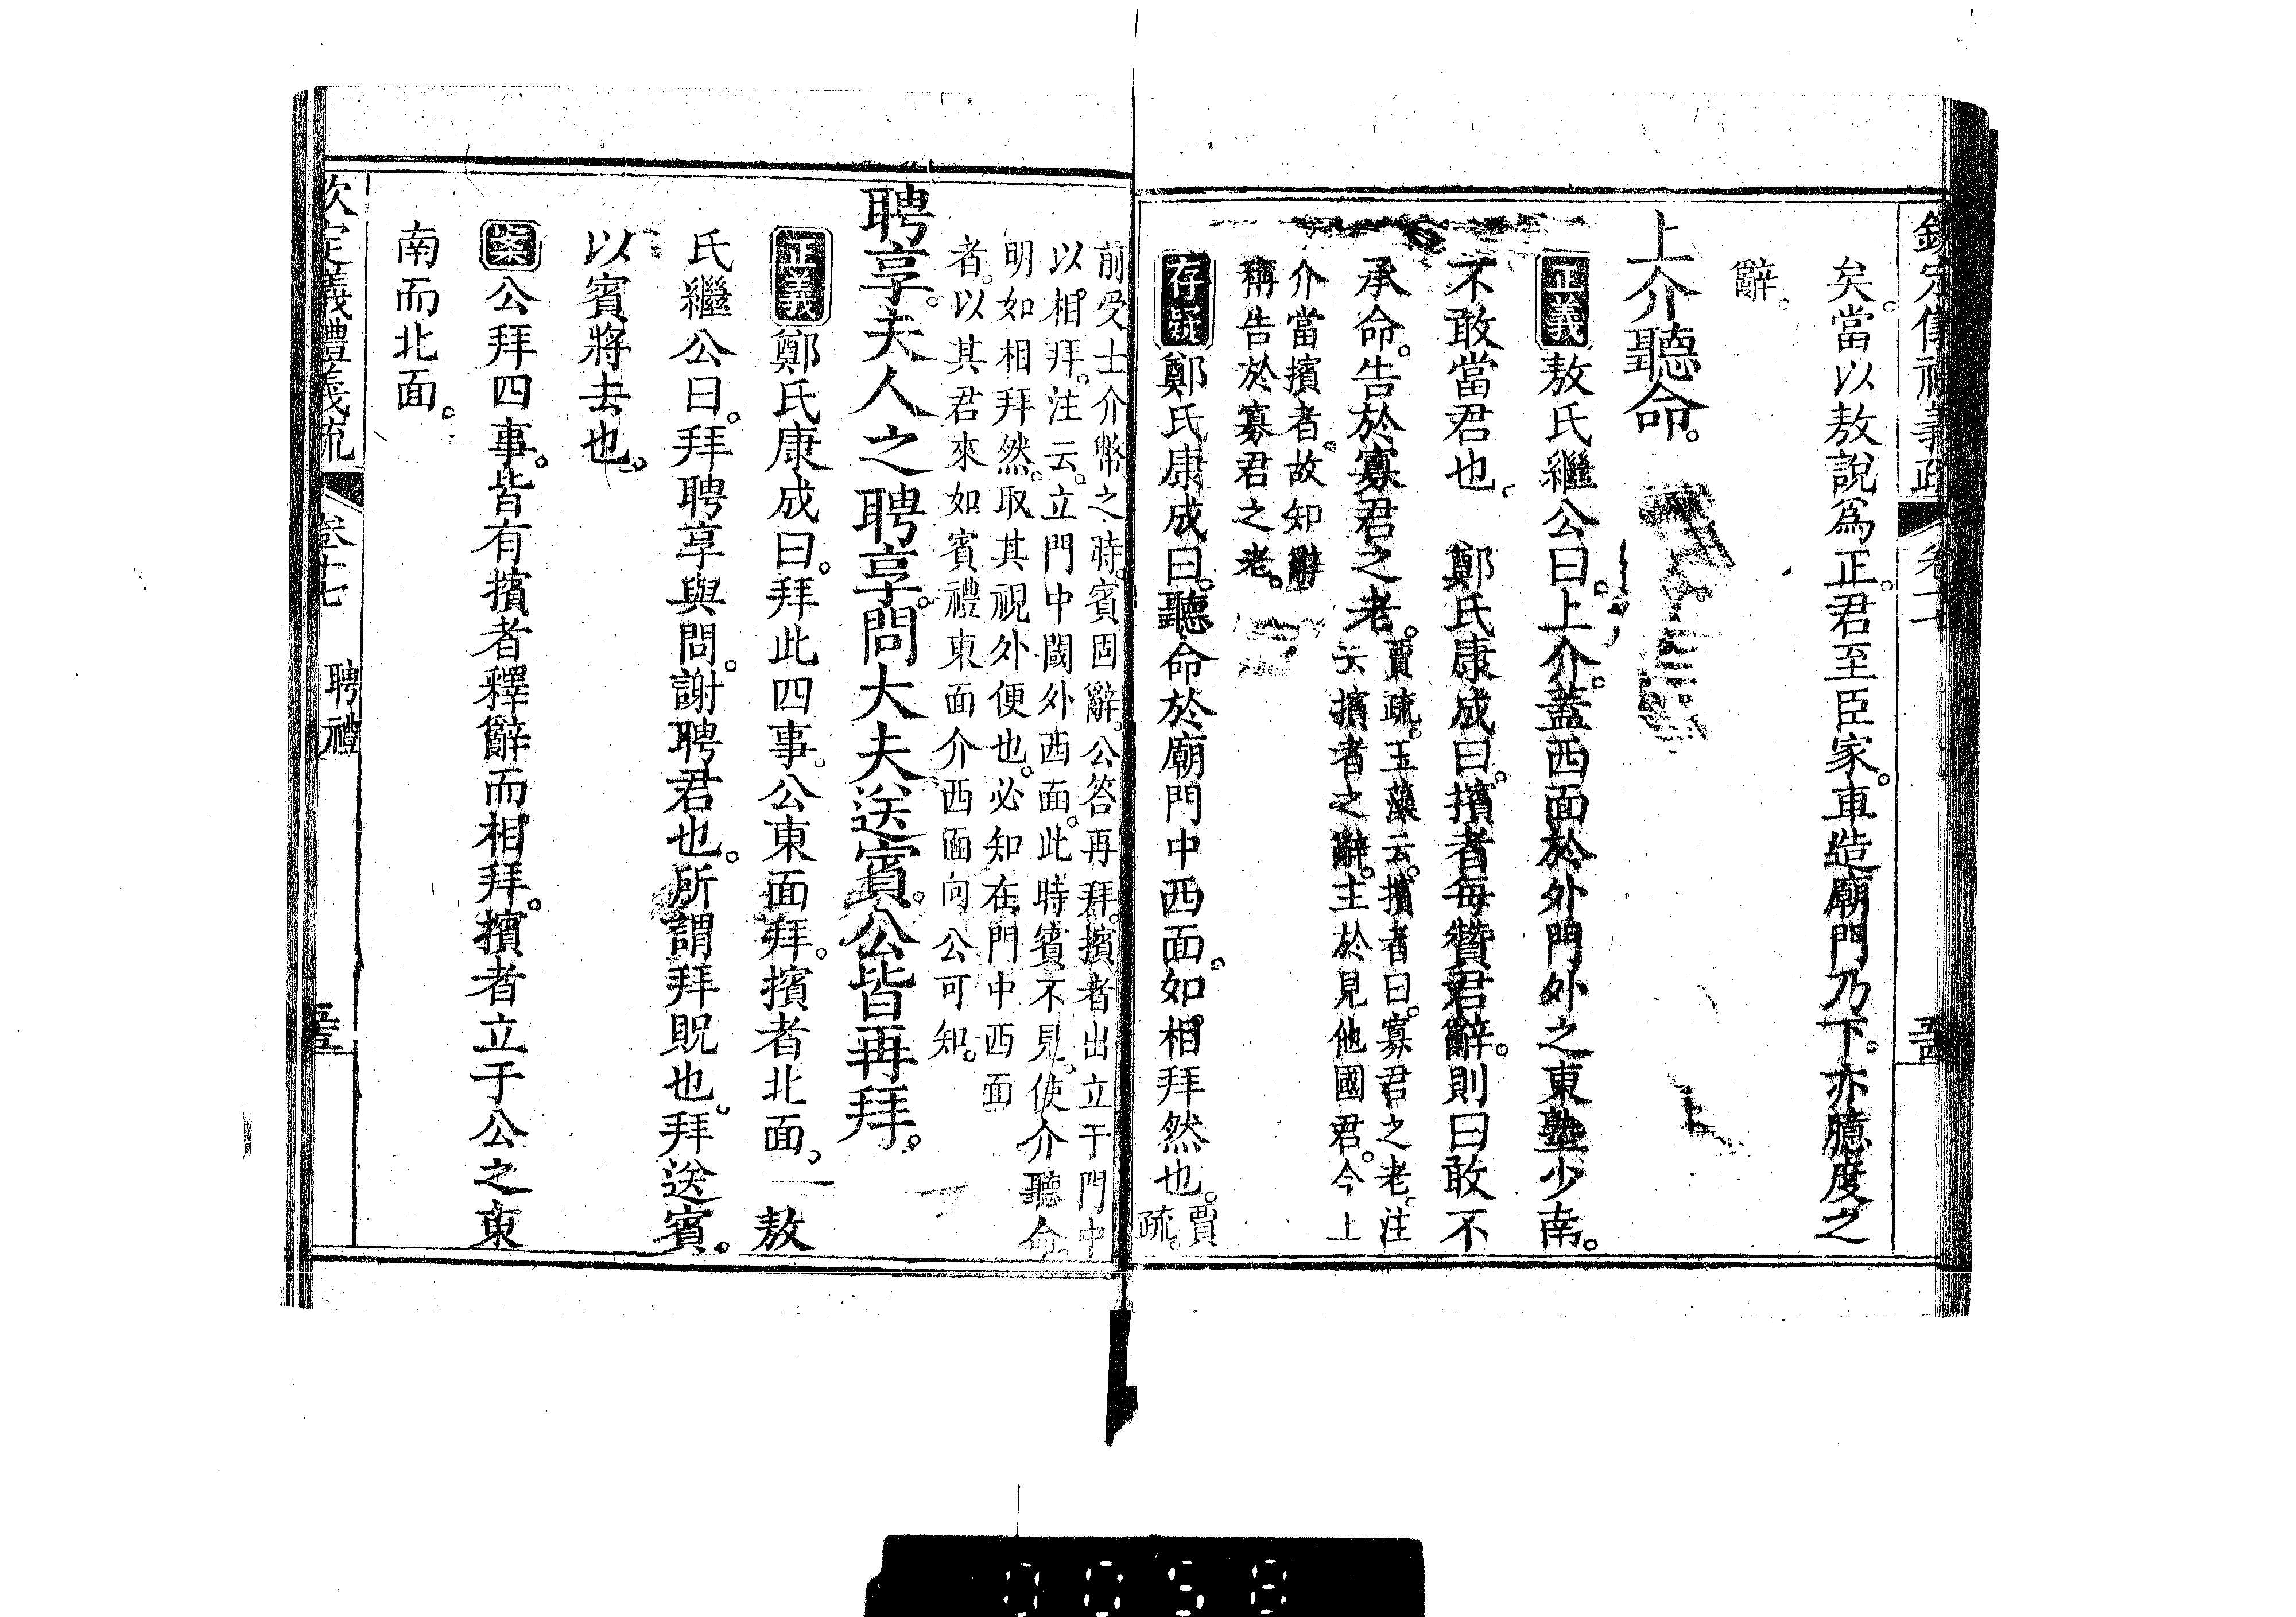 欽定儀禮義疏 卷十七 五十四
矣。當以敖說爲正。君至臣家。車造廟門乃下。亦臆度之
辭。
上介聽命。
正義 敖氏繼公曰。上介。蓋西面於外門外之東塾少南。
不敢當君也。 鄭氏康成曰。擯者每贊君辭。則曰敢不
承命。告於寡君之老。賈疏。玉藻云。擯者曰。寡君之老。注
云擯者之辭。主於見他國君。今上
介當擯者。故知辭
稱告於寡君之老。
存疑 鄭氏康成曰。聽命於廟門中西面。如相拜然也。賈
疏。
前受士介幣之時。賓固辭。公答再拜。擯者出立于門中
以相拜。注云。立門中閾外西面。此時賓不見。使介聽命
明如相拜然。取其視外便也。必知在門中西面
者。以其君來如賓禮東面介西面向公可知。
聘享。夫人之聘享。問大夫。送賓。公皆再拜。
正義 鄭氏康成曰。拜此四事。公東面拜。擯者北面。 敖
氏繼公曰。拜聘享與問。謝聘君也。所謂拜貺也。拜送賓。
以賓將去也。
案 公拜四事。皆有擯者釋辭而相拜。擯者立于公之東
南而北面。
欽定儀禮義疏 卷十七 聘禮 五十五